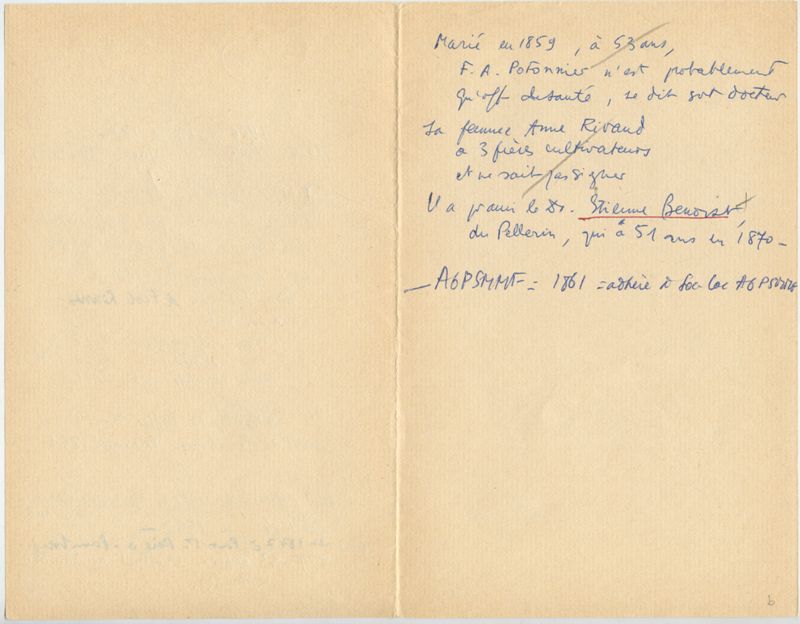 Marié en 1859, à 53 ans,
F. A. Potonnier n'est probablement
qu'off de santé, se dit docteur
Sa femme Anne Rivaud
a 3 frères cultivateurs
et ne sait pas signer
Il a parmi le Dr. Étienne Benoist,
du Pellerin, qui a 51 ans en 1870 -
— AGPSMMF = 1861 = adhère à Soc loc
b